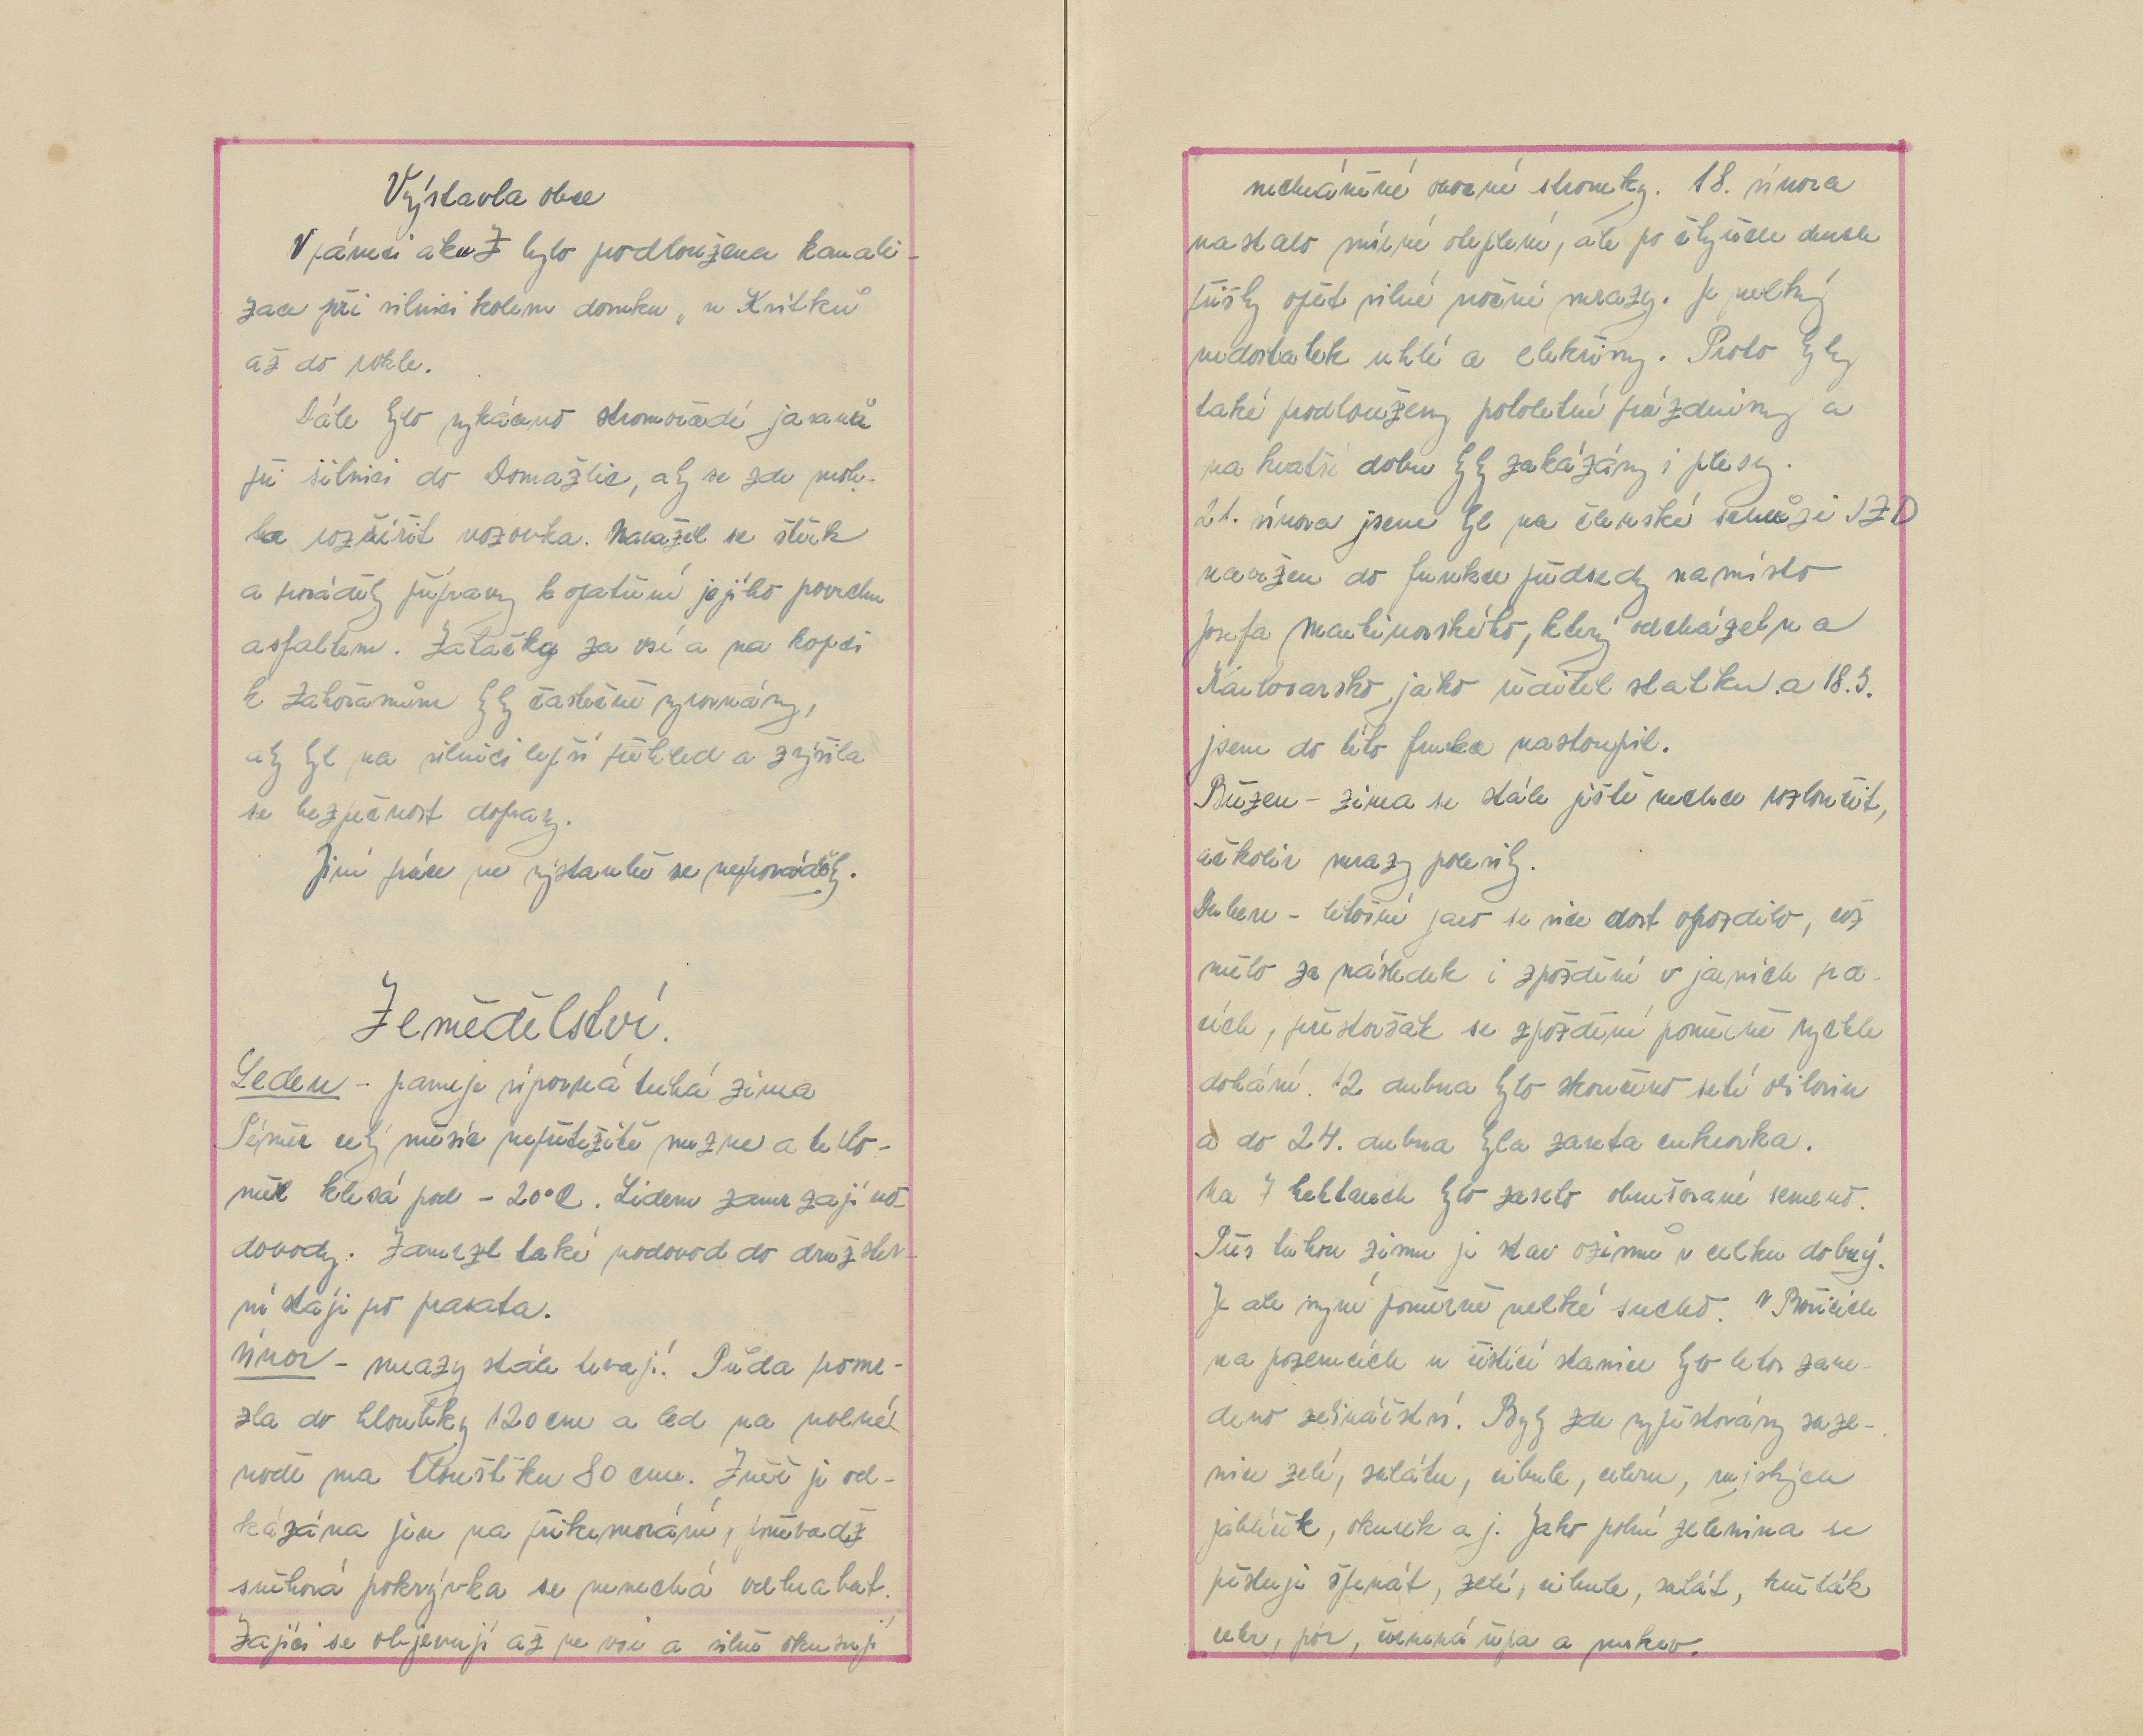 Výstavba obce
V rámci akce Z bylo prodloužena kanali-
zace při silnici kolem domku „u Kritků
až do rokle.
Dále bylo vykáceno stromořadí jasanů
při silnici do Domažlic, aby se zde moh-
la rozšířit vozovka. Navážel se štěrk
a prováděly přípravy k opatření jejího povrchu
asfaltem. Zatáčky za vsí a na kopci
k Zahořanům byly částečně vyrovnány,
aby byl na silnici lepší přehled a zvýšila
se bezpečnost dopravy.
Jiné práce ve výstavbě se neprováděly.
Zemědělství.
Leden - panuje úporná tuhá zima
Téměř celý měsíc nepřetržitě mrzne a teplo-
měr klesá pod - 20°C. Lidem zamrzají vo-
dovody. Zamrzl také vodovod do družstev-
ní stáje pro prasata.
Únor - mrazy stále trvají. Půda prome-
zla do hloubky 120 cm a led na volné
vodě má tloušťku 80 cm. Zvěř je od-
kázána jen na přikrmování, poněvadž
sněhová pokrývka se nenechá odhrabat.
Zajíci se objevují až ve vsi a silně okusují
nechráněné ovocné stromky. 18. února
nastalo mírné oteplení, ale po čtyřech dnech
přišly opět silné noční mrazy. Je velký
nedostatek uhlí a elektřiny. Proto byly
také prodlouženy pololetní prázdniny a
na kratší dobu byly zakázány i plesy.
21. února jsem byl na členské schůzi JZD
navržen do funkce předsedy na místo
Josefa Martinovského, který odcházel na
Karlovarsko jako ředitel statku a 18.3.
jsem do této funkce nastoupil.
Březen - zima se stále ještě nechce rozloučit,
ačkoliv mrazy polevily.
Duben - letošní jaro se sice dost opozdilo, což
mělo za následek i zpoždění v jarních pra-
cích, přestože však se zpoždění poměrně rychle
dohání. 12 dubna bylo skončeno setí obilovin
a do 24. dubna byla zaseta cukrovka.
Na 7 hektarech bylo zaseto obrušované semeno.
Přes tuhou zimu je stav ozimů v celku dobrý.
Je ale nyní poměrně velké sucho. V Bořicích
na pozemcích u čistící stanice bylo letos zave-
deno zelinářství. Byly zde vypěstovány saze-
nice zelí, salátu, cibule, celeru, rajských
jablíček, okurek a j. Jako polní zelenina se
pěstuje špenát, zelí, cibule, salát, květák
celer, pór, červená řepa a mrkev.